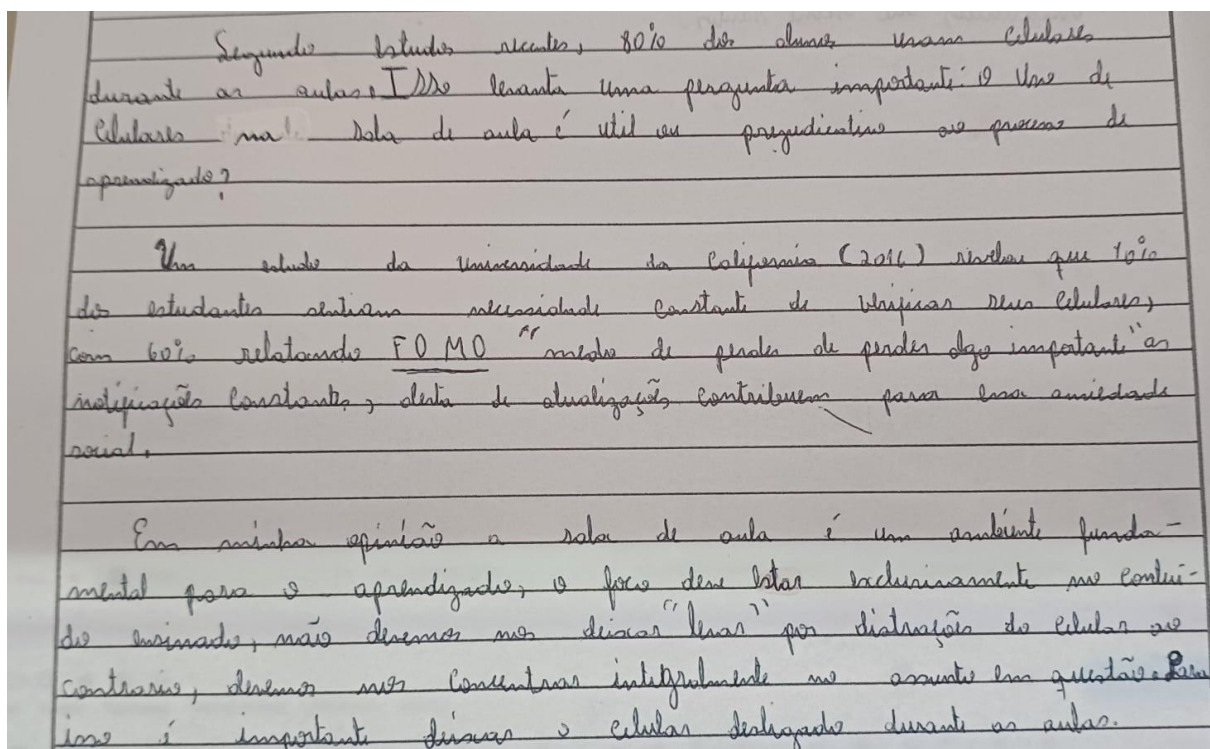 Segundo Estudos recentes, 80% dos alunos usam Celulares
durante as aulas. Isso levanta uma pergunta importante: O Uso de
Celulares na sala de aula é util ou prejudicativo ao processo de
aprendizado?
Um estudo da Universidade da California (2016) revelou que 70%
dos estudantes sentiam necessidade constante de verificar seus Celulares,
com 60% relatando FOMO "medo de perder de perder algo importante" as
notificações Constantes, alerta de atualizações contribuem para essa ansiedade
social.
Em minha opinião a sala de aula é um ambiente funda-
mental para o aprendizado, o foco deve Estar exclusivamente no conteú-
do ensinado, não devemos nos deixar "levar" por distrações do celular ao
contrario, devemos nos Concentrar integralmente no assunto em questão. Para
isso é importante deixar o celular desligado durante as aulas.